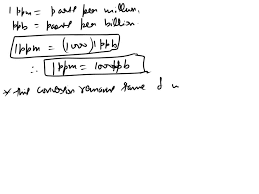 1 ppm = parts per million.
ppb = parts per billion
1ppm = (1000) 1ppb
∴ 1ppm = 1000ppb
* this conversion remains same d